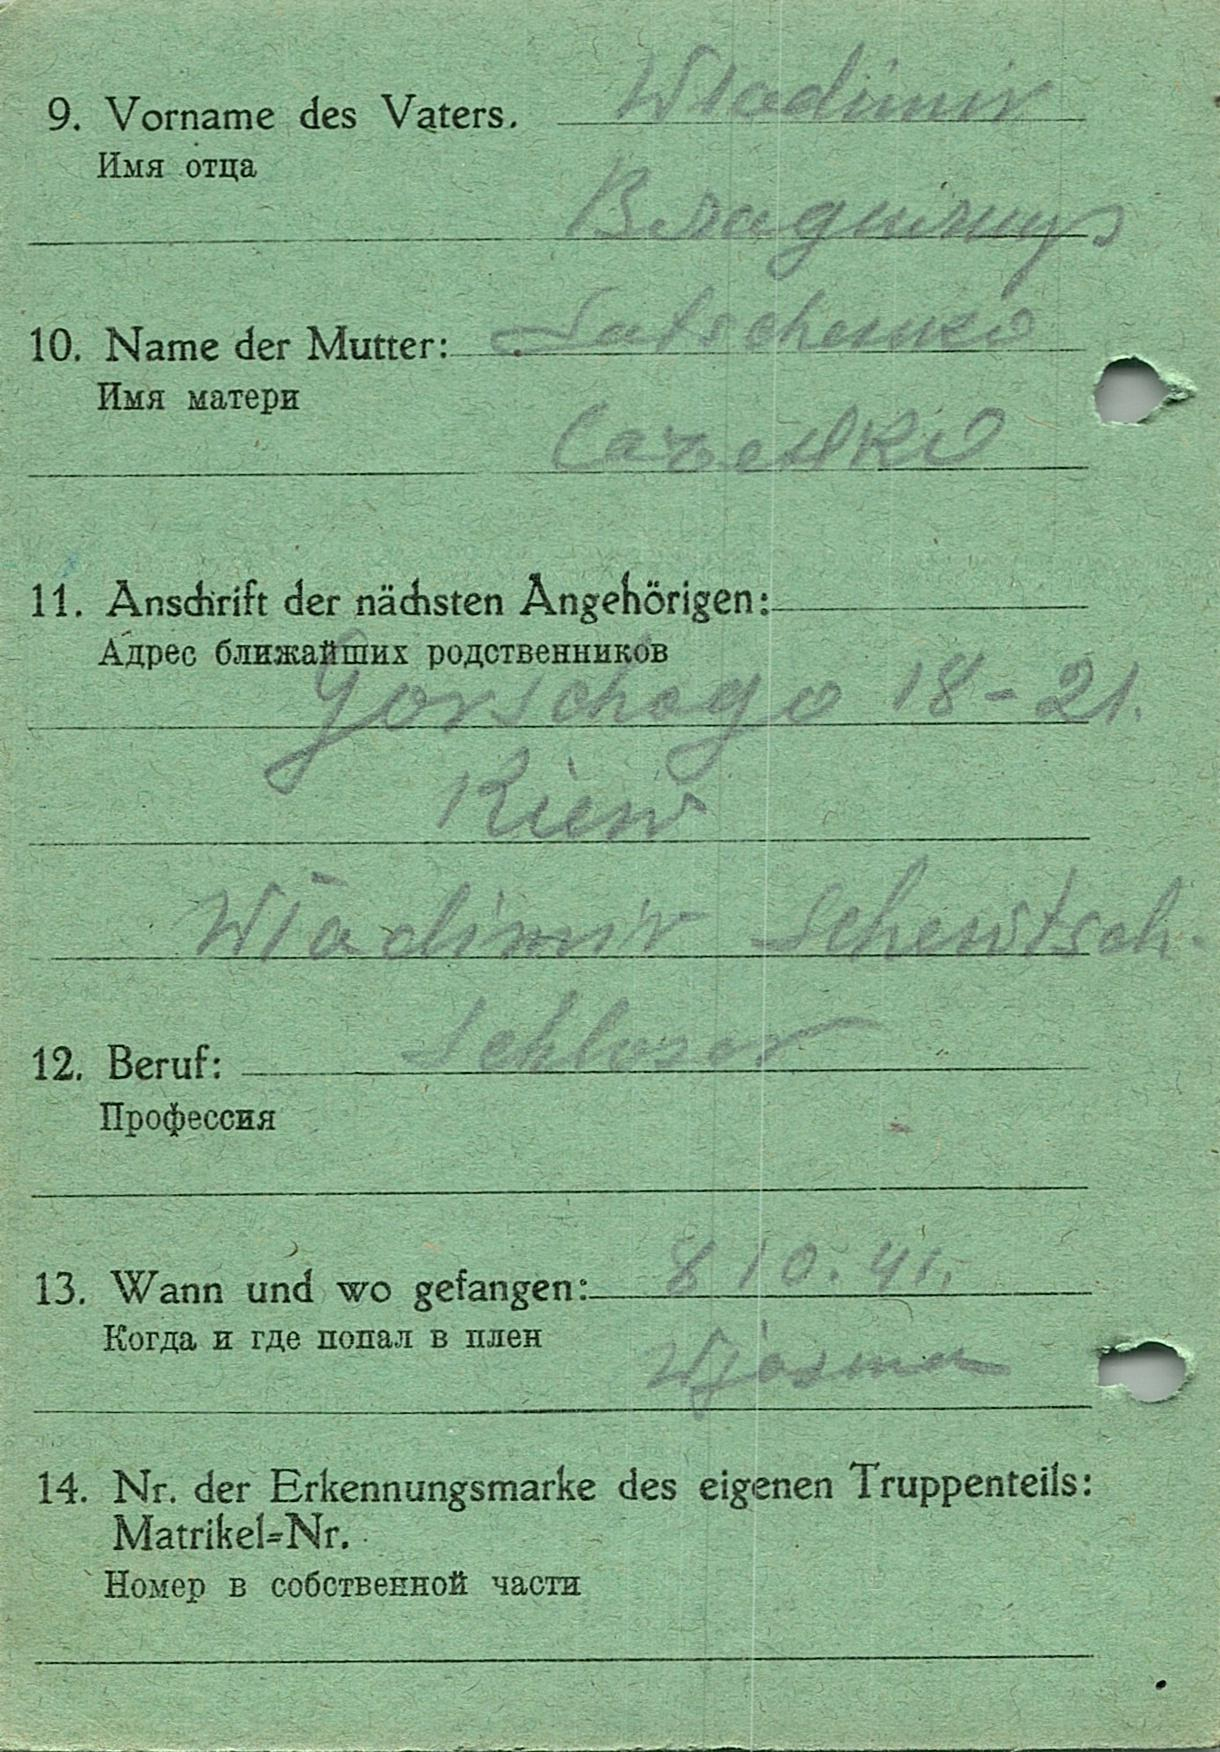 9. Vorname des Vaters. Wladimir
Имя отца
Владимир
10. Name der Mutter: Satschenko
Имя матери
Саченко
11. Anschrift der nächsten Angehörigen:
Адрес ближайших родственников
Gorschogo 18-21.
Kiew
Wladimir Schewtsch.
12. Beruf: Schloser
Профессия
13. Wann und wo gefangen: 8 10. 41.
Когда и где попал в плен
Wjasma
14. Nr. der Erkennungsmarke des eigenen Truppenteils:
Matrikel=Nr.
Номер в собственной части